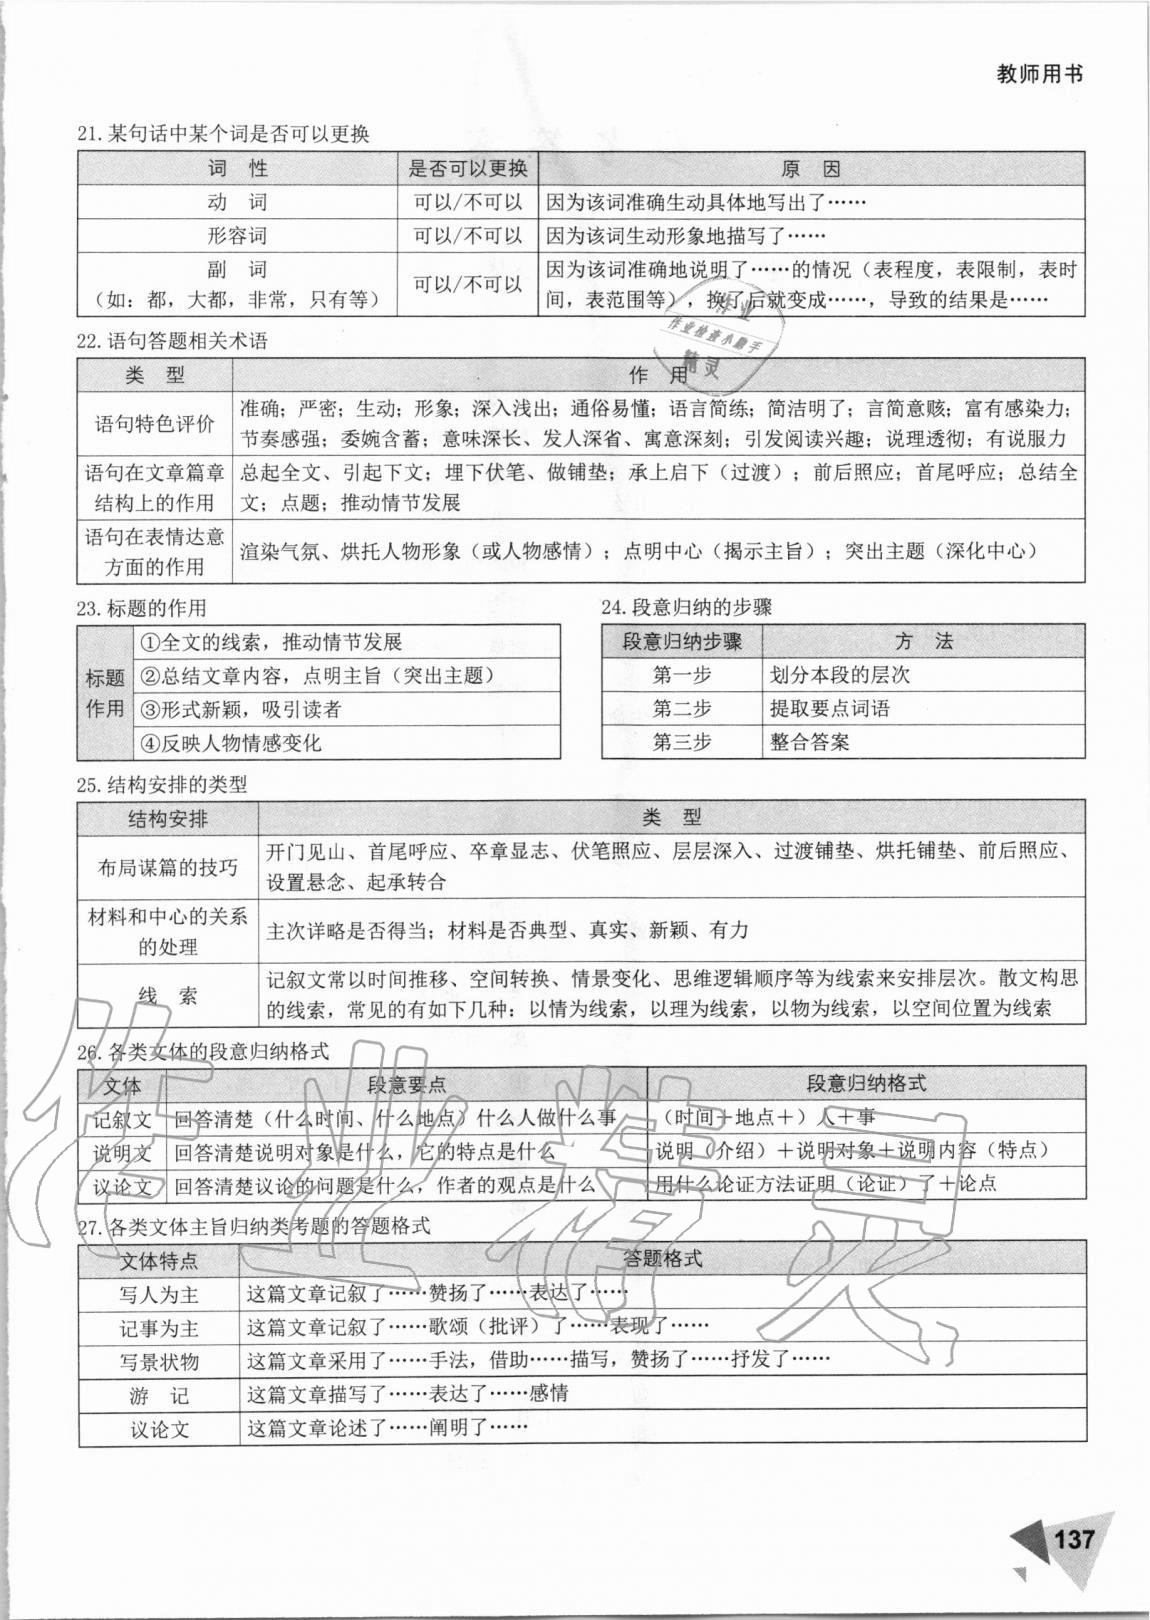 教师用书
21.某句话中某个词是否可以更换
词 性 是否可以更换 原 因
动 词 可以/不可以 因为该词准确生动具体地写出了……
形容词 可以/不可以 因为该词生动形象地描写了……
副 词
(如:都,大都,非常,只有等) 可以/不可以 因为该词准确地说明了……的情况(表程度,表限制,表时
间,表范围等),换了后就变成……,导致的结果是……
22.语句答题相关术语
类 型 作 用
语句特色评价 准确;严密;生动;形象;深入浅出;通俗易懂;语言简练;简洁明了;言简意赅;富有感染力;
节奏感强;委婉含蓄;意味深长、发人深省、寓意深刻;引发阅读兴趣;说理透彻;有说服力
语句在文章篇章 总起全文、引起下文;埋下伏笔、做铺垫;承上启下(过渡);前后照应;首尾呼应;总结全
结构上的作用 文;点题;推动情节发展
语句在表情达意
方面的作用 渲染气氛、烘托人物形象(或人物感情);点明中心(揭示主旨);突出主题(深化中心)
23.标题的作用
标题
作用
①全文的线索,推动情节发展
②总结文章内容,点明主旨(突出主题)
③形式新颖,吸引读者
④反映人物情感变化
24.段意归纳的步骤
段意归纳步骤 方 法
第一步 划分本段的层次
第二步 提取要点词语
第三步 整合答案
25.结构安排的类型
结构安排 类 型
布局谋篇的技巧 开门见山、首尾呼应、卒章显志、伏笔照应、层层深入、过渡铺垫、烘托铺垫、前后照应、
设置悬念、起承转合
材料和中心的关系
的处理 主次详略是否得当;材料是否典型、真实、新颖、有力
线 索 记叙文常以时间推移、空间转换、情景变化、思维逻辑顺序等为线索来安排层次。散文构思
的线索,常见的有如下几种:以情为线索,以理为线索,以物为线索,以空间位置为线索
26.各类文体的段意归纳格式
文体 段意要点 段意归纳格式
记叙文 回答清楚(什么时间、什么地点)什么人做什么事 (时间+地点+)人+事
说明文 回答清楚说明对象是什么,它的特点是什么 说明(介绍)+说明对象+说明内容(特点)
议论文 回答清楚议论的问题是什么,作者的观点是什么 用什么论证方法证明(论证)了+论点
27.各类文体主旨归纳类考题的答题格式
文体特点 答题格式
写人为主 这篇文章记叙了……赞扬了……表达了……
记事为主 这篇文章记叙了……歌颂(批评)了……表现了……
写景状物 这篇文章采用了……手法,借助……描写,赞扬了……抒发了……
游 记 这篇文章描写了……表达了……感情
议论文 这篇文章论述了……阐明了……
137
作业
作业检查小助手
精灵
作业精灵